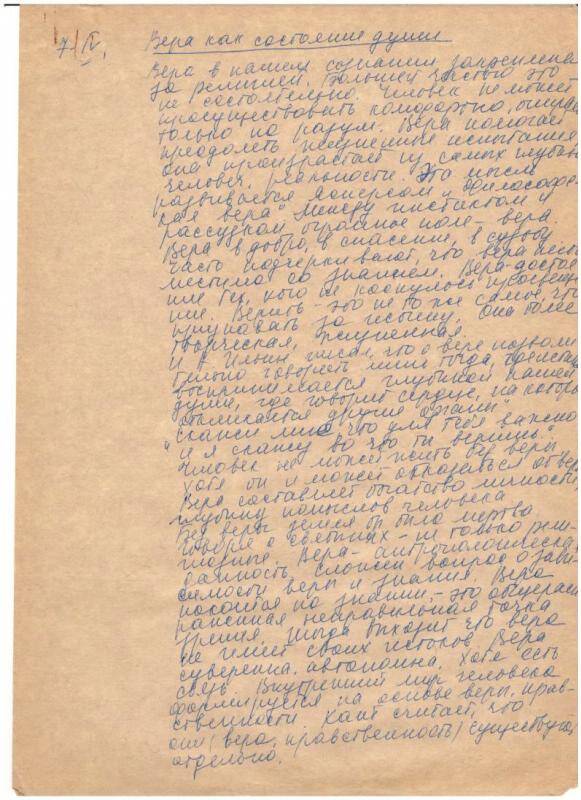 7/IV. Вера как состояние души
Вера в нашем сознании закреплена
за религией. Большей частью это
не состоятельно. Человек не может
просуществовать комфортно,
только на разум. Вера помогает
преодолеть жизненные испытания
она произрастает из самых глубин
человеч. реальности. Эта мысль
развивается Ясперсом и "Философс
кая вера" Между инстинктом и
рассудком огромное поле - вера.
Вера в добро, в спасение, в судьбу
Часто подчеркивают, что вера несов
местима со знанием. Вера - достоя
ние тех, кого не коснулось просвеще
ние. Верить - это не то же самое, что
признавать за истину. Она более
творческая, жизненная.
И А Ильин писал, что о вере позволи
тельно говорить лишь тогда,
воспринимается глубиной нашей
души, где говорит сердце, на котор
откликаются другие
Скажи мне, что для тебя важно
"и я скажу во что ты веришь."
Человек не может жить без веры
хотя он и может отказаться от вер
Вера составляет богатство личности,
глубину помыслов человека
Без веры земля бы была мертва
Говоря о святынях - не только рели
гиозные. Вера - антропологическая
данность, сложен вопрос о зави-
симости веры и знания Вера
покоится на знании, - это
неправильная точка
зрения, тогда выходит что вера
не имеет своих истоков Вера
суверенна, автономна. Хотя есть
связь. Внутренний мир человека
формируется на основе веры, нрав-
ственности. Кант считает, что
они (вера, нравственность) существуют
отдельно.